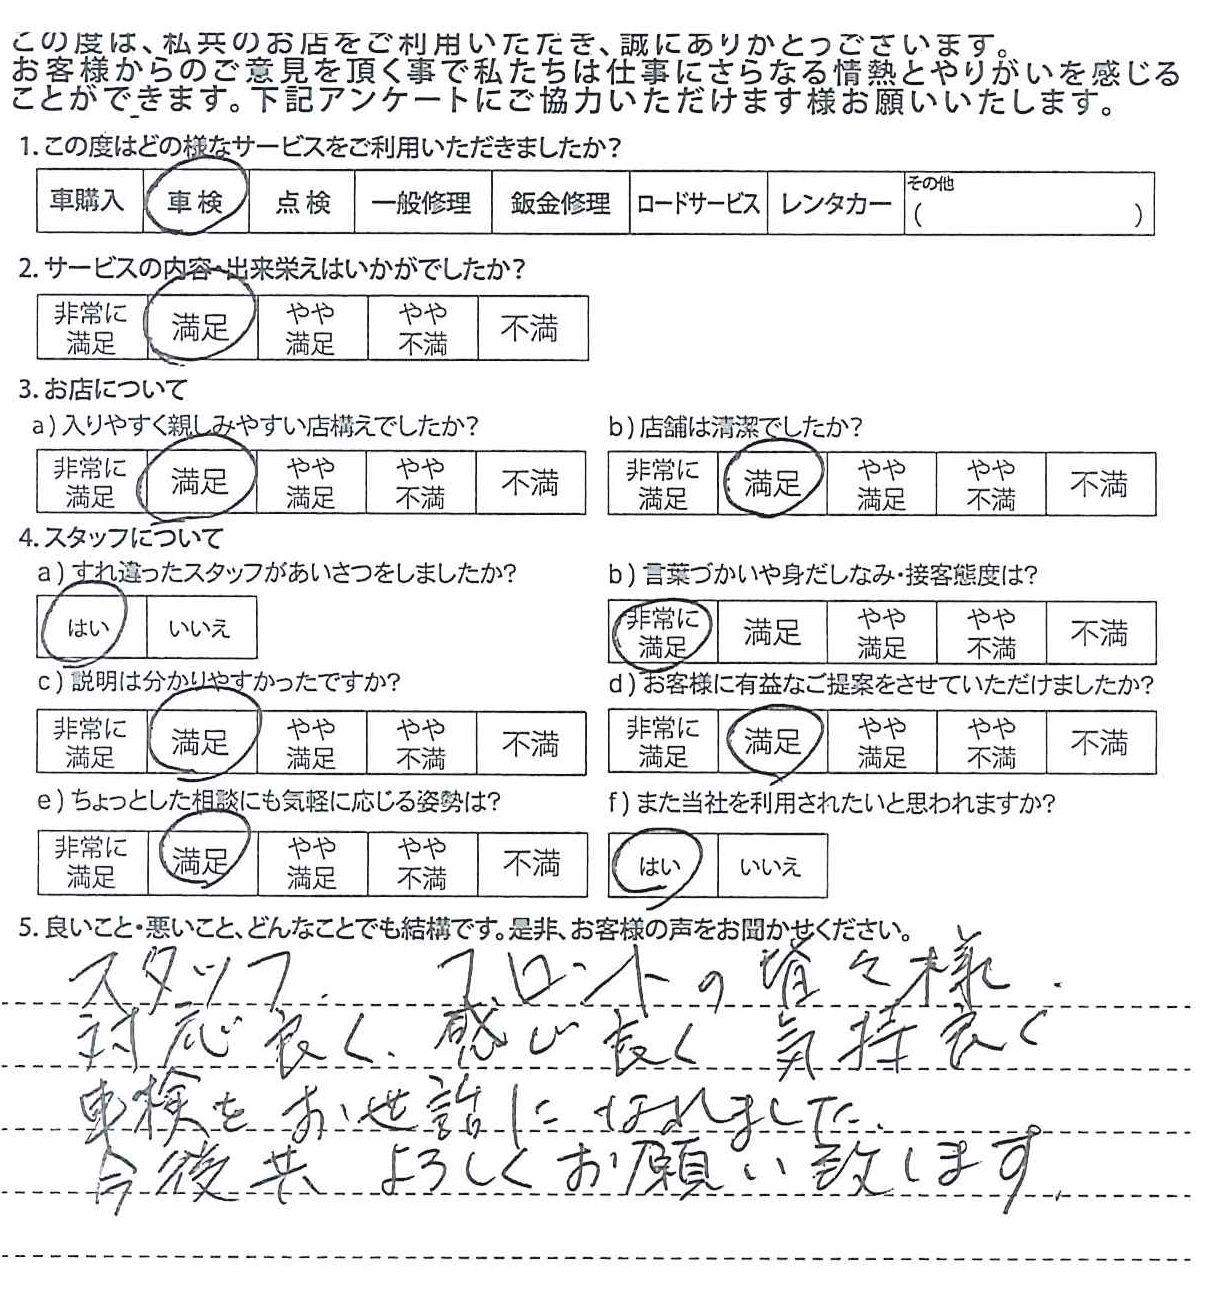 この度は、私共のお店をご利用いただき、誠にありがとうございます。
お客様からのご意見を頂く事で私たちは仕事にさらなる情熱とやりがいを感じる
ことができます。下記アンケートにご協力いただけます様お願いいたします。
1.この度はどの様なサービスをご利用いただきましたか?
車購入 車検 点検 一般修理 鈑金修理 ロードサービス レンタカー その他 ( )
2.サービスの内容・出来栄えはいかがでしたか?
非常に満足 満足 やや満足 やや不満 不満
3.お店について
a)入りやすく親しみやすい店構えでしたか?
非常に満足 満足 やや満足 やや不満 不満
b)店舗は清潔でしたか?
非常に満足 満足 やや満足 やや不満 不満
4.スタッフについて
a)すれ違ったスタッフがあいさつをしましたか?
はい いいえ
b)言葉づかいや身だしなみ・接客態度は?
非常に満足 満足 やや満足 やや不満 不満
c)説明は分かりやすかったですか?
非常に満足 満足 やや満足 やや不満 不満
d)お客様に有益なご提案をさせていただけましたか?
非常に満足 満足 やや満足 やや不満 不満
e)ちょっとした相談にも気軽に応じる姿勢は?
非常に満足 満足 やや満足 やや不満 不満
f)また当社を利用されたいと思われますか?
はい いいえ
5.良いこと・悪いこと、どんなことでも結構です。是非、お客様の声をお聞かせください。
スタッフ、フロントの皆々様、
対応良く、感じ良く気持良く
車検をお世話になれました。
今後共よろしくお願い致します。